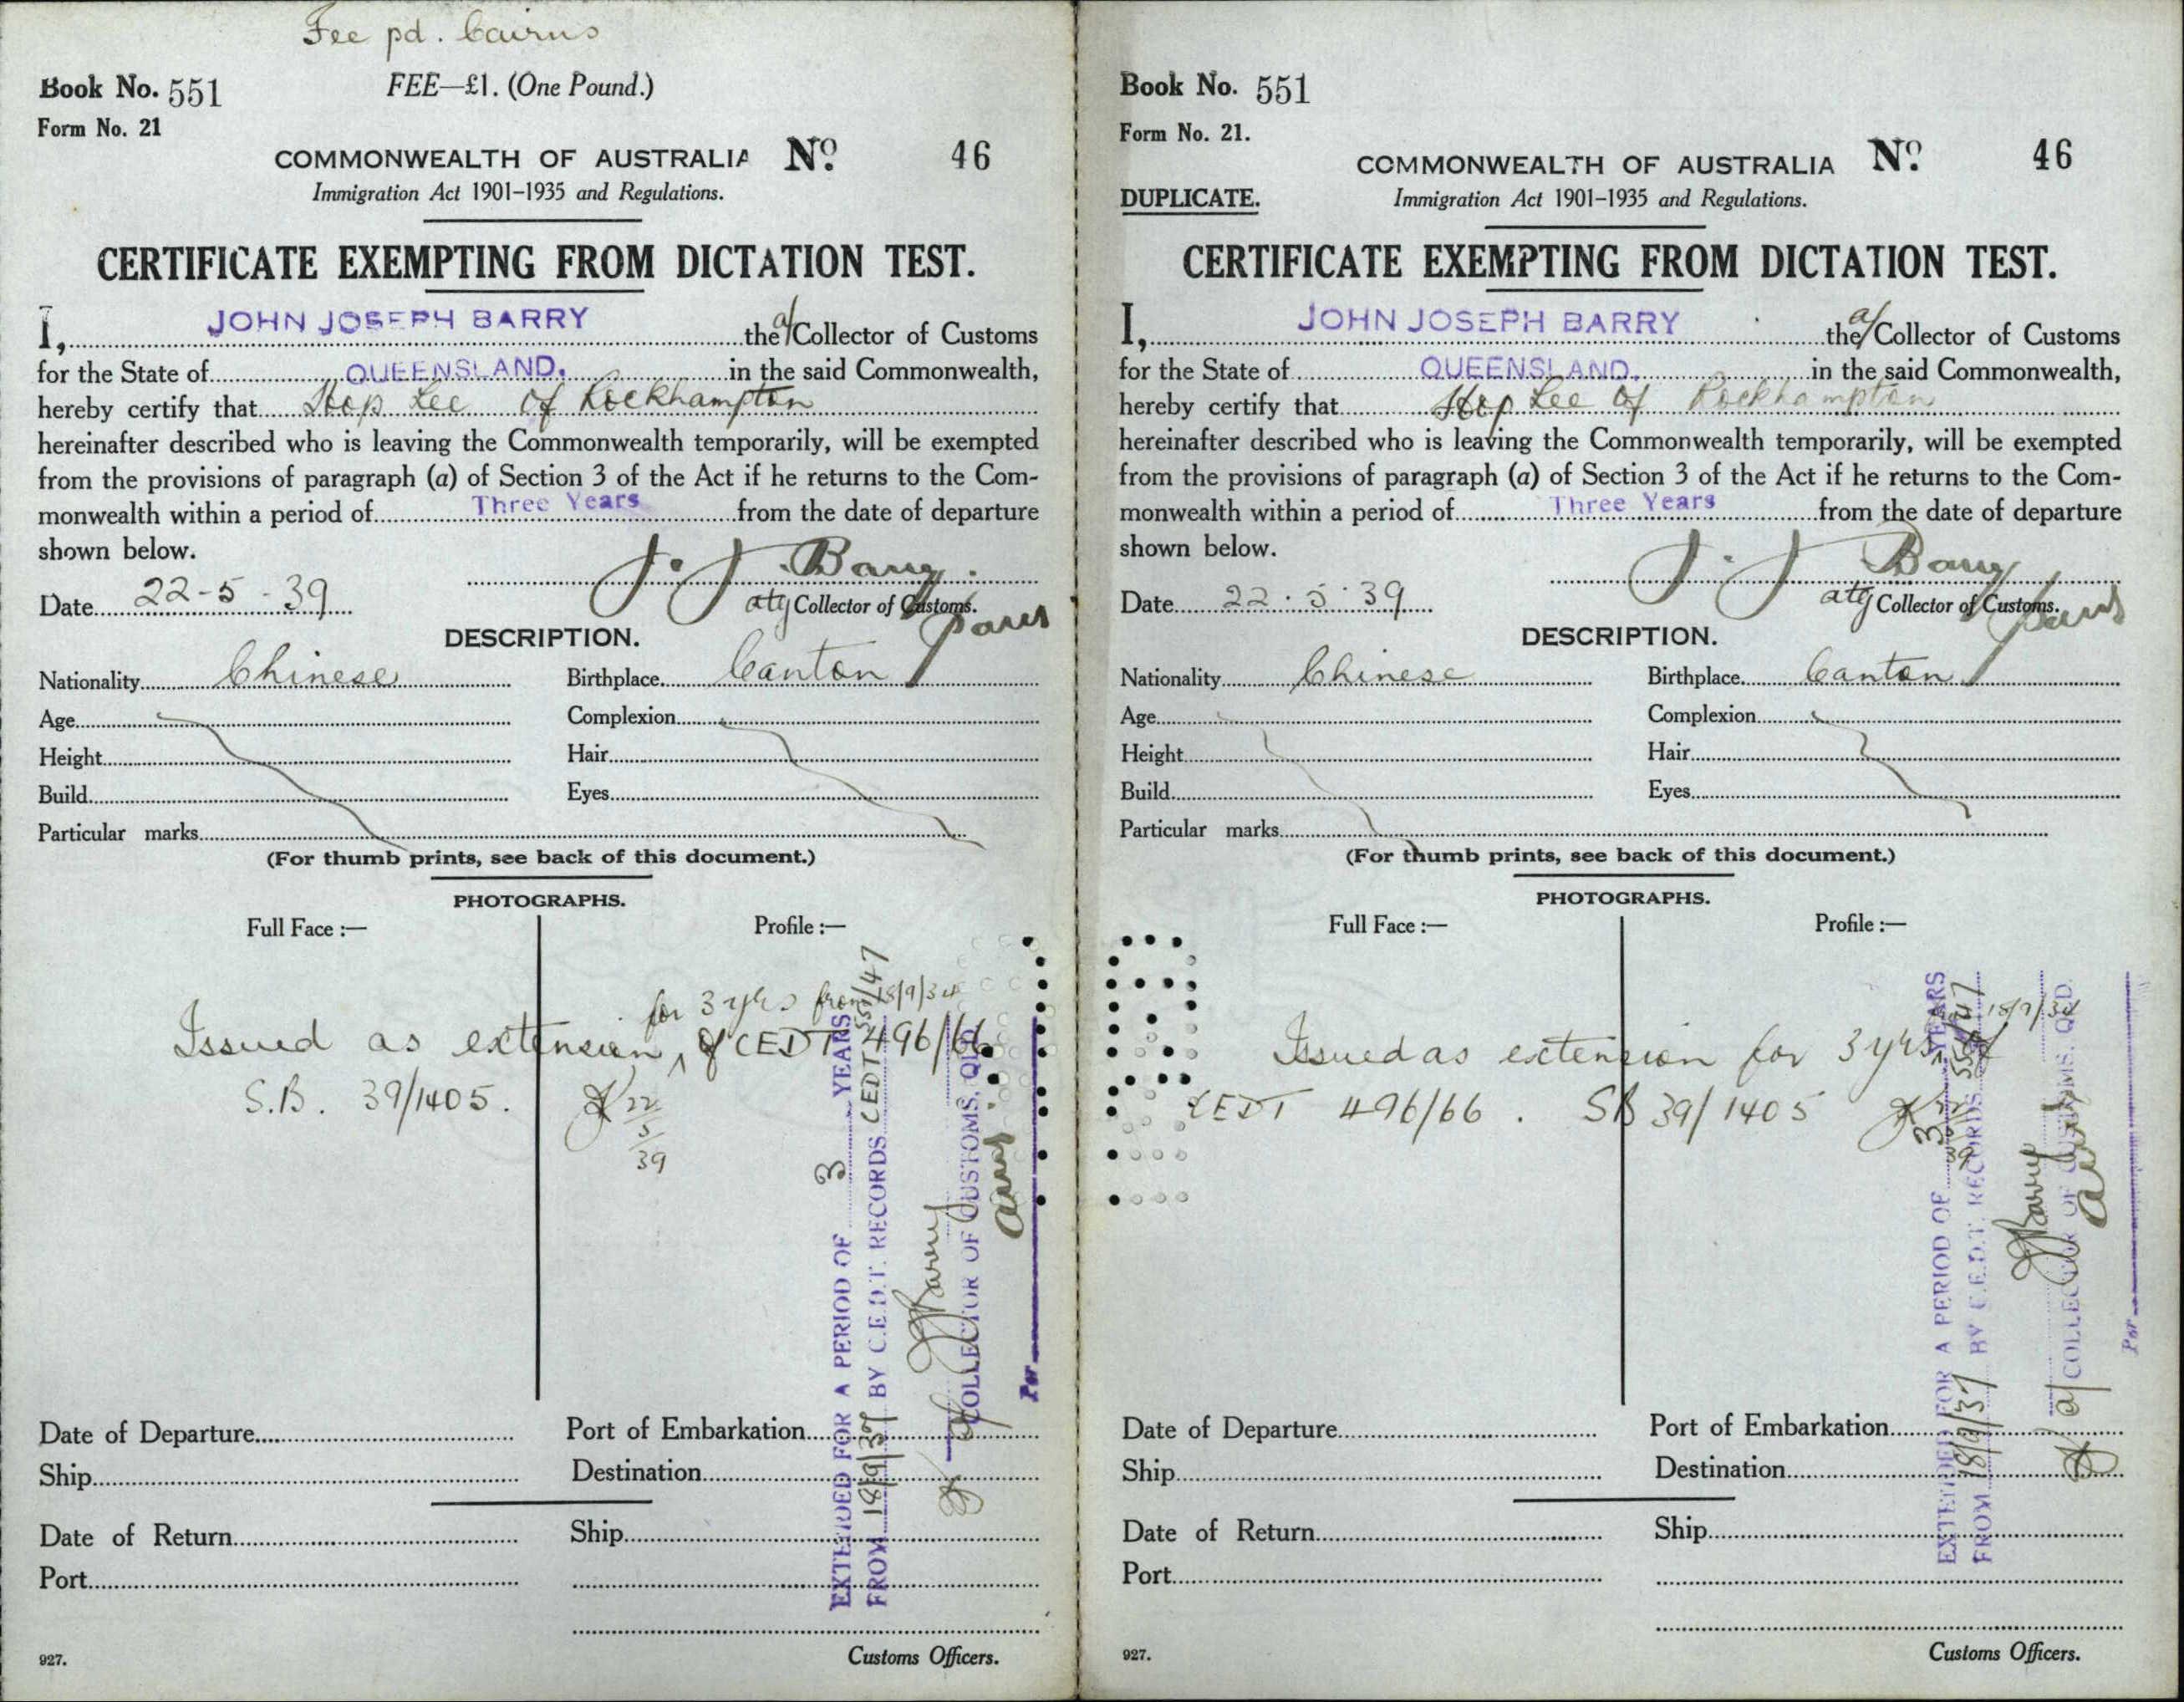 Fee pd. Cairns
Book No. 551
FEE—£1. (One Pound.)
Form No. 21
COMMONWEALTH OF AUSTRALIA No. 46
Immigration Act 1901–1935 and Regulations.
CERTIFICATE EXEMPTING FROM DICTATION TEST.
I, JOHN JOSEPH BARRY the a/ Collector of Customs
for the State of QUEENSLAND. in the said Commonwealth,
hereby certify that Hop Lee of Rockhampton
hereinafter described who is leaving the Commonwealth temporarily, will be exempted
from the provisions of paragraph (a) of Section 3 of the Act if he returns to the Com-
monwealth within a period of Three Years from the date of departure
shown below.
J. J. Barry
Date 22-5-39
atg Collector of Customs.
DESCRIPTION.
Nationality Chinese Birthplace Canton
Age Complexion
Height Hair
Build Eyes
Particular marks
(For thumb prints, see back of this document.)
PHOTOGRAPHS.
Full Face :— Profile :—
for 3 yrs from 18/9/34
Issued as extension of CEDT 496/66
S.B. 39/1405.
22
5
39
EXTENDED FOR A PERIOD OF 3 YEARS
FROM 18/9/37 BY C.E.D.T. RECORDS CEDT 551/47
JJBarry
COLLECTOR OF CUSTOMS, QLD.
Per
Date of Departure Port of Embarkation
Ship Destination
Date of Return Ship
Port
927. Customs Officers.
Book No. 551
Form No. 21.
COMMONWEALTH OF AUSTRALIA No. 46
DUPLICATE.
Immigration Act 1901–1935 and Regulations.
CERTIFICATE EXEMPTING FROM DICTATION TEST.
I, JOHN JOSEPH BARRY the a/ Collector of Customs
for the State of QUEENSLAND. in the said Commonwealth,
hereby certify that Hop Lee of Rockhampton
hereinafter described who is leaving the Commonwealth temporarily, will be exempted
from the provisions of paragraph (a) of Section 3 of the Act if he returns to the Com-
monwealth within a period of Three Years from the date of departure
shown below.
J. J. Barry
Date 22.5.39
atg Collector of Customs.
DESCRIPTION.
Nationality Chinese Birthplace Canton
Age Complexion
Height Hair
Build Eyes
Particular marks
(For thumb prints, see back of this document.)
PHOTOGRAPHS.
Full Face :— Profile :—
18/9/34
Issued as extension for 3 yrs of
CEDT 496/66 . SB 39/1405
22
5
39
EXTENDED FOR A PERIOD OF 3 YEARS
FROM 18/9/37 BY C.E.D.T. RECORDS 551/47
JJBarry
a/ COLLECTOR OF CUSTOMS, QLD.
Per
Date of Departure Port of Embarkation
Ship Destination
Date of Return Ship
Port
927. Customs Officers.